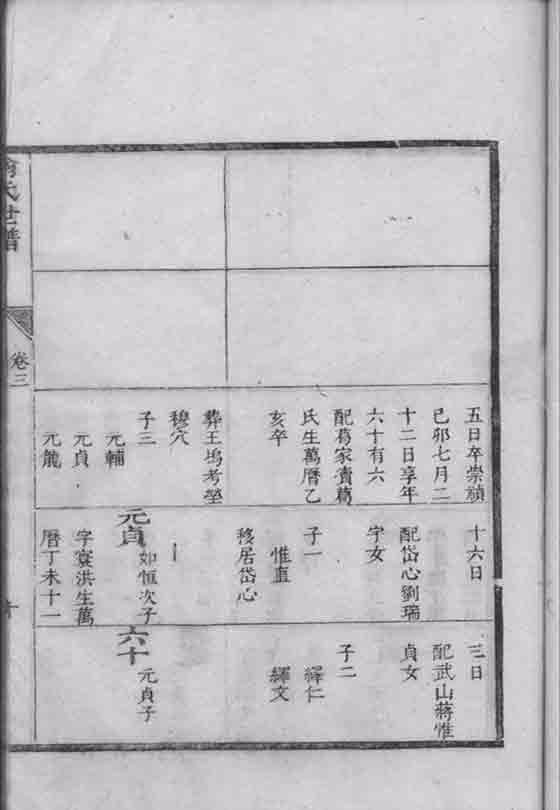 五日卒崇禎
己卯七月二
十二日享年
六十有六
配葛家賣葛
氏生萬曆乙
亥卒
葬王塢考塋
穆穴
子三
元輔
元貞
元龍
十六日
配岱心劉瑞
宇女
子一
惟直
移居岱心
元貞 如恒次子
字寰洪生萬
曆丁未十一
三日
配武山蔣惟
貞女
子二
繹仁
繹文
六十 元貞子
氏世譜
卷三
十